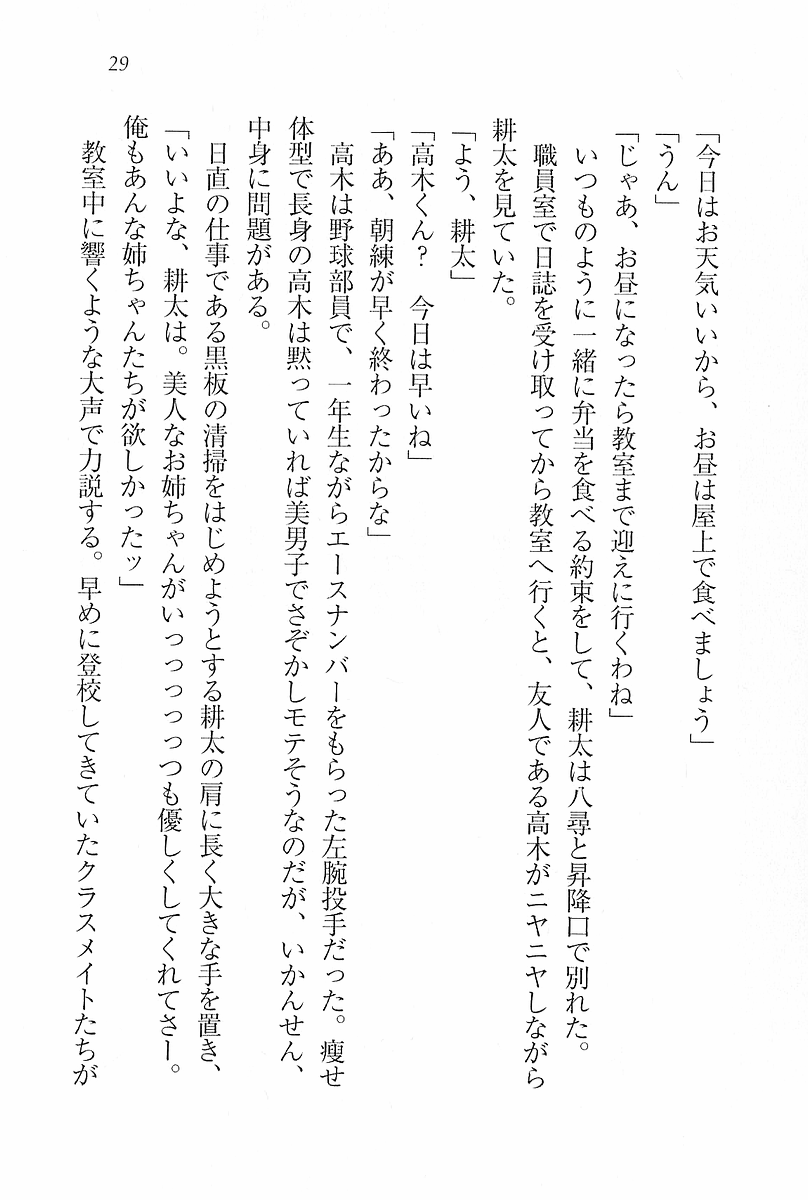 29
「今日はお天気いいから、お昼は屋上で食べましょう」
「うん」
「じゃあ、お昼になったら教室まで迎えに行くわね」
いつものように一緒に弁当を食べる約束をして、耕太は八尋と昇降口で別れた。
職員室で日誌を受け取ってから教室へ行くと、友人である高木がニヤニヤしながら
耕太を見ていた。
「よう、耕太」
「高木くん？　今日は早いね」
「ああ、朝練が早く終わったからな」
高木は野球部員で、一年生ながらエースナンバーをもらった左腕投手だった。痩せ
体型で長身の高木は黙っていれば美男子でさぞかしモテそうなのだが、いかんせん、
中身に問題がある。
日直の仕事である黒板の清掃をはじめようとする耕太の肩に長く大きな手を置き、
「いいよな、耕太は。美人なお姉ちゃんがいっつっっっつも優しくしてくれてさー。
俺もあんな姉ちゃんたちが欲しかったッ」
教室中に響くような大声で力説する。早めに登校してきていたクラスメイトたちが